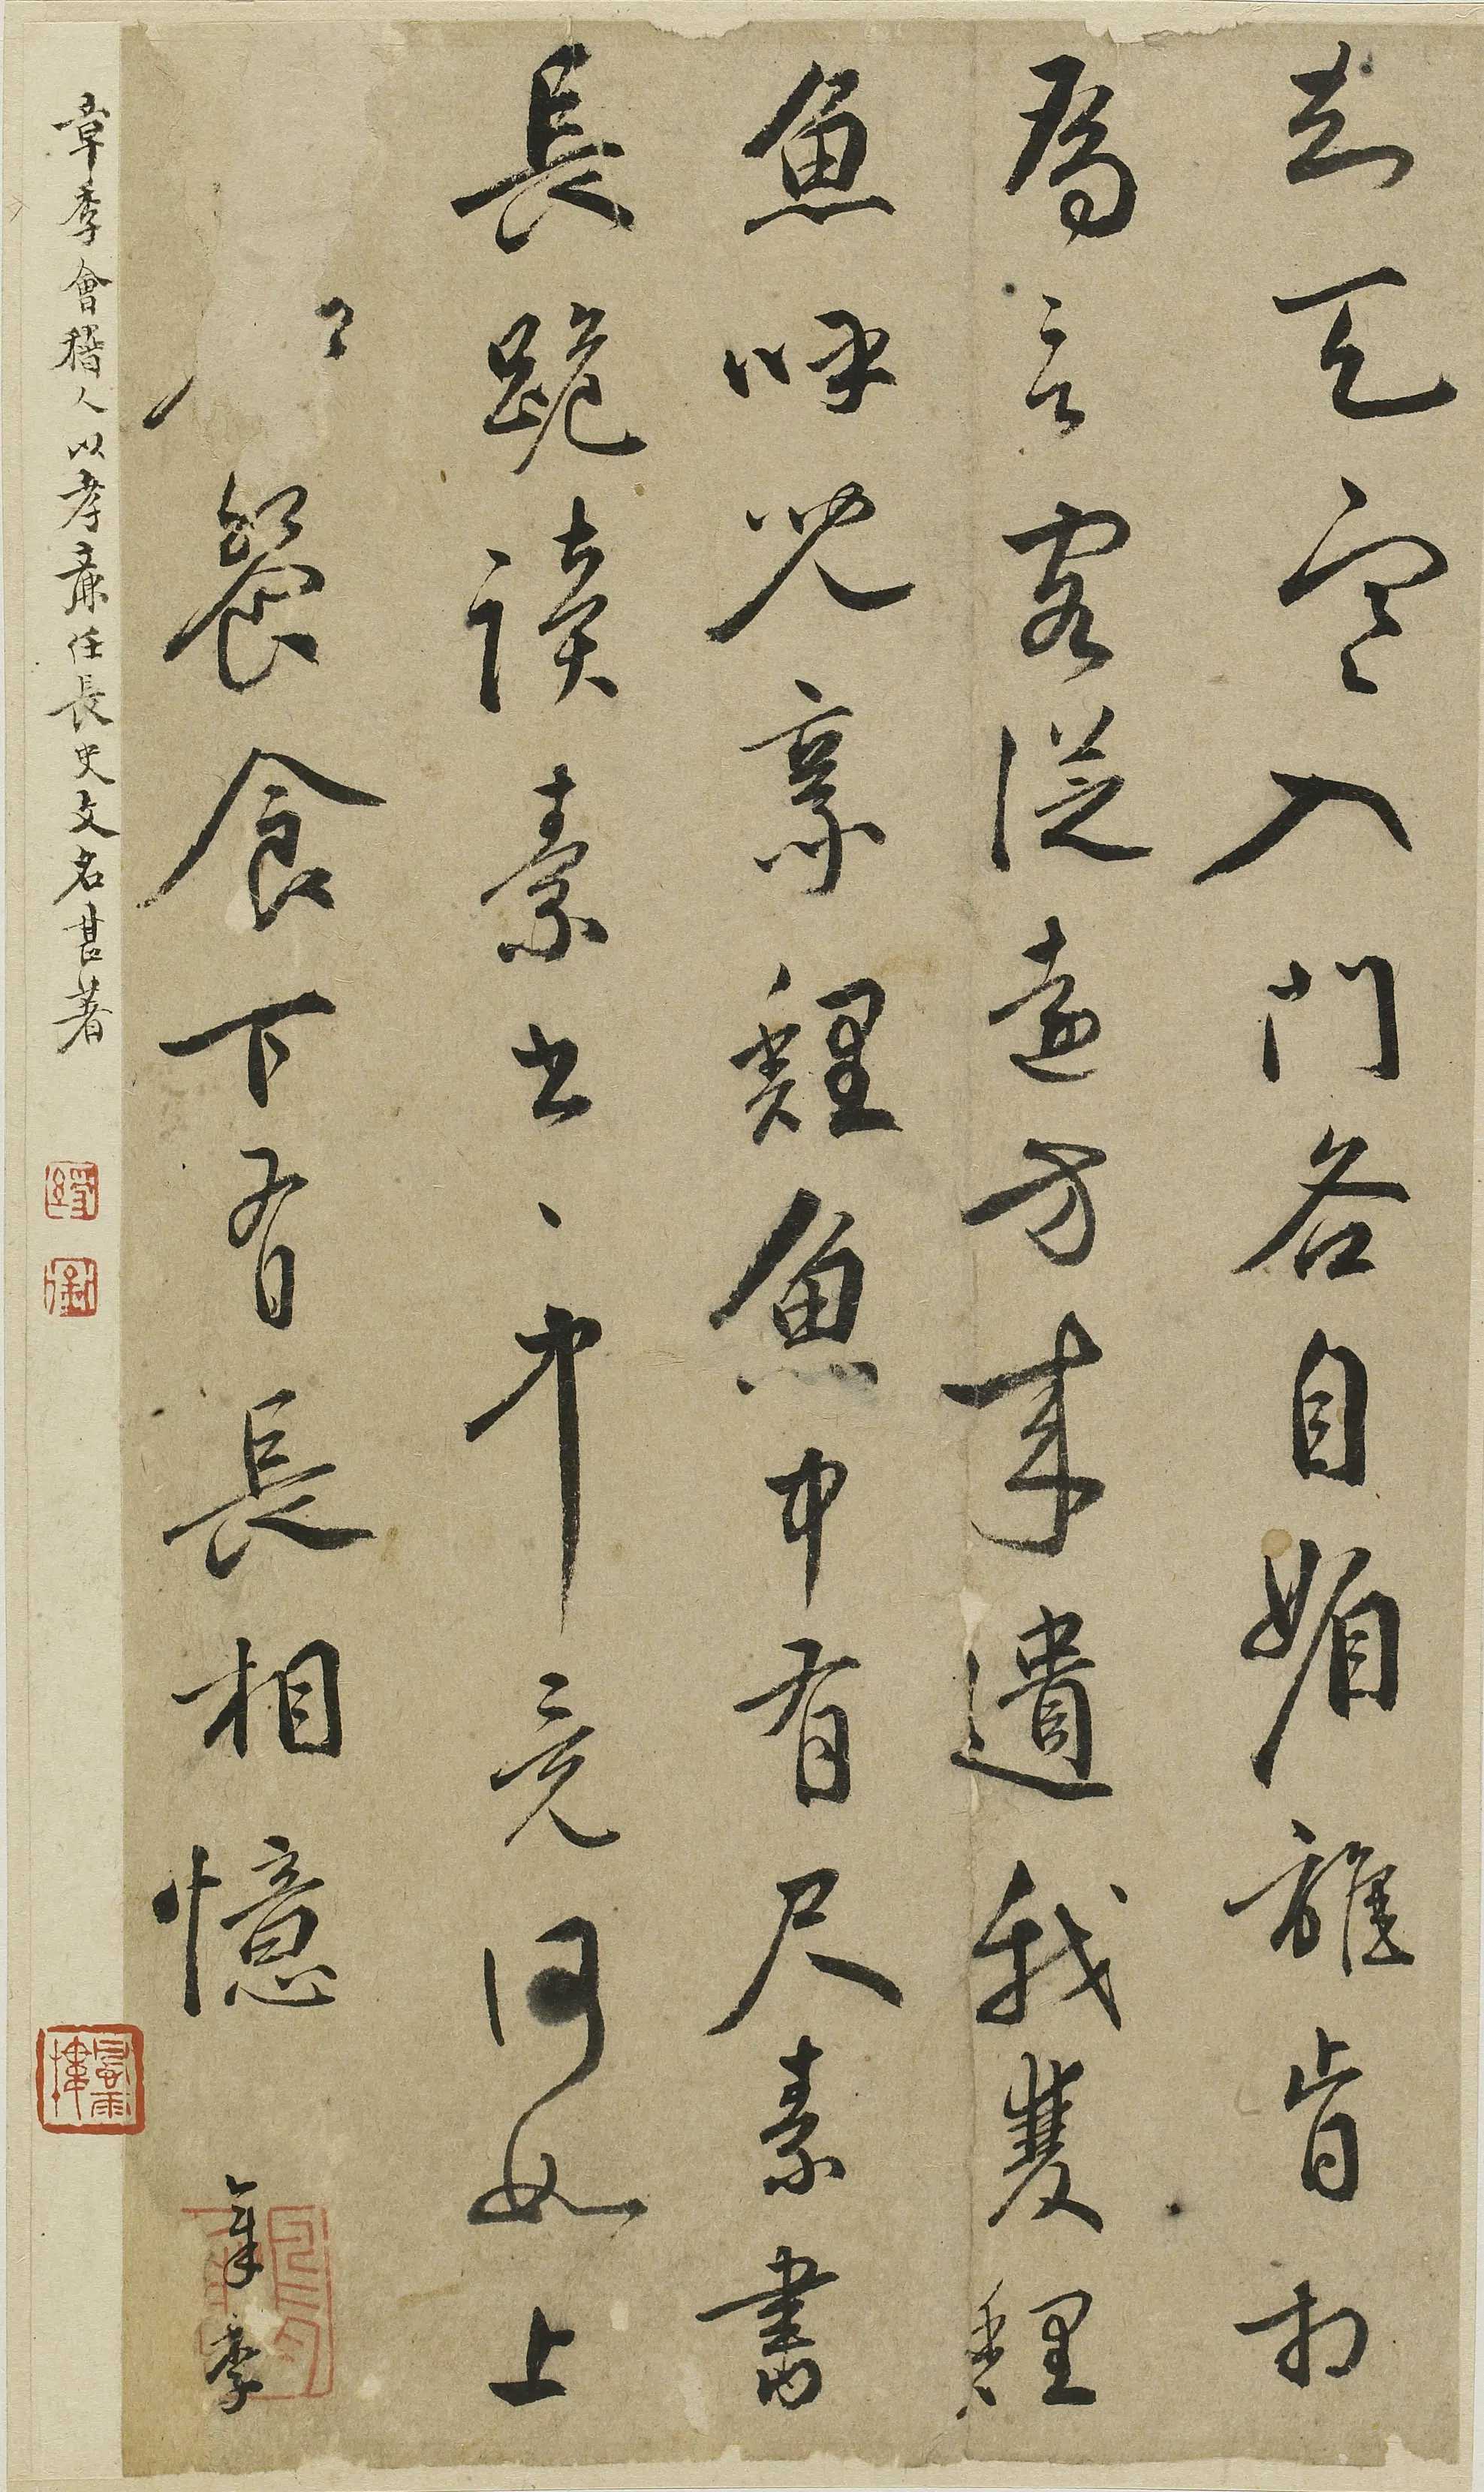 知天寒入門各自媚誰肯相
為言客從遠方來遺我雙鯉
魚呼兒烹鯉魚中有尺素書
長跪讀素書〻中竟何如上
餐食下有長相憶
章季
章季會稽人以孝廉任長史文名甚著
風雨樓